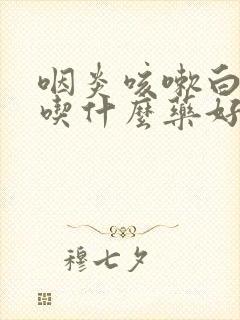 咽炎咳嗽白
喫什麼藥好
穆七夕